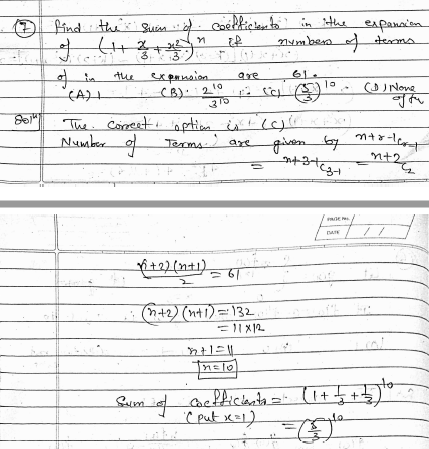 7 Find the sum of coefficients in the expansion
of (1 + x/3 + x²/3)ⁿ if numbers of terms
of in the expansion are 61.
(A) 1 (B) 2¹⁰/3¹⁰ (C) (5/3)¹⁰ (D) None of
Solⁿ The correct option is (C)
Number of Terms are given by n+r-1Cr-1
= n+3-1C3-1 = n+2C2
PAGE No.
DATE / /
(n+2)(n+1)/2 = 61
(n+2)(n+1) = 132
= 11 x 12
n+1 = 11
n = 10
Sum of coefficients = (1 + 1/3 + 1/3)¹⁰
(put x=1)
= (5/3)¹⁰